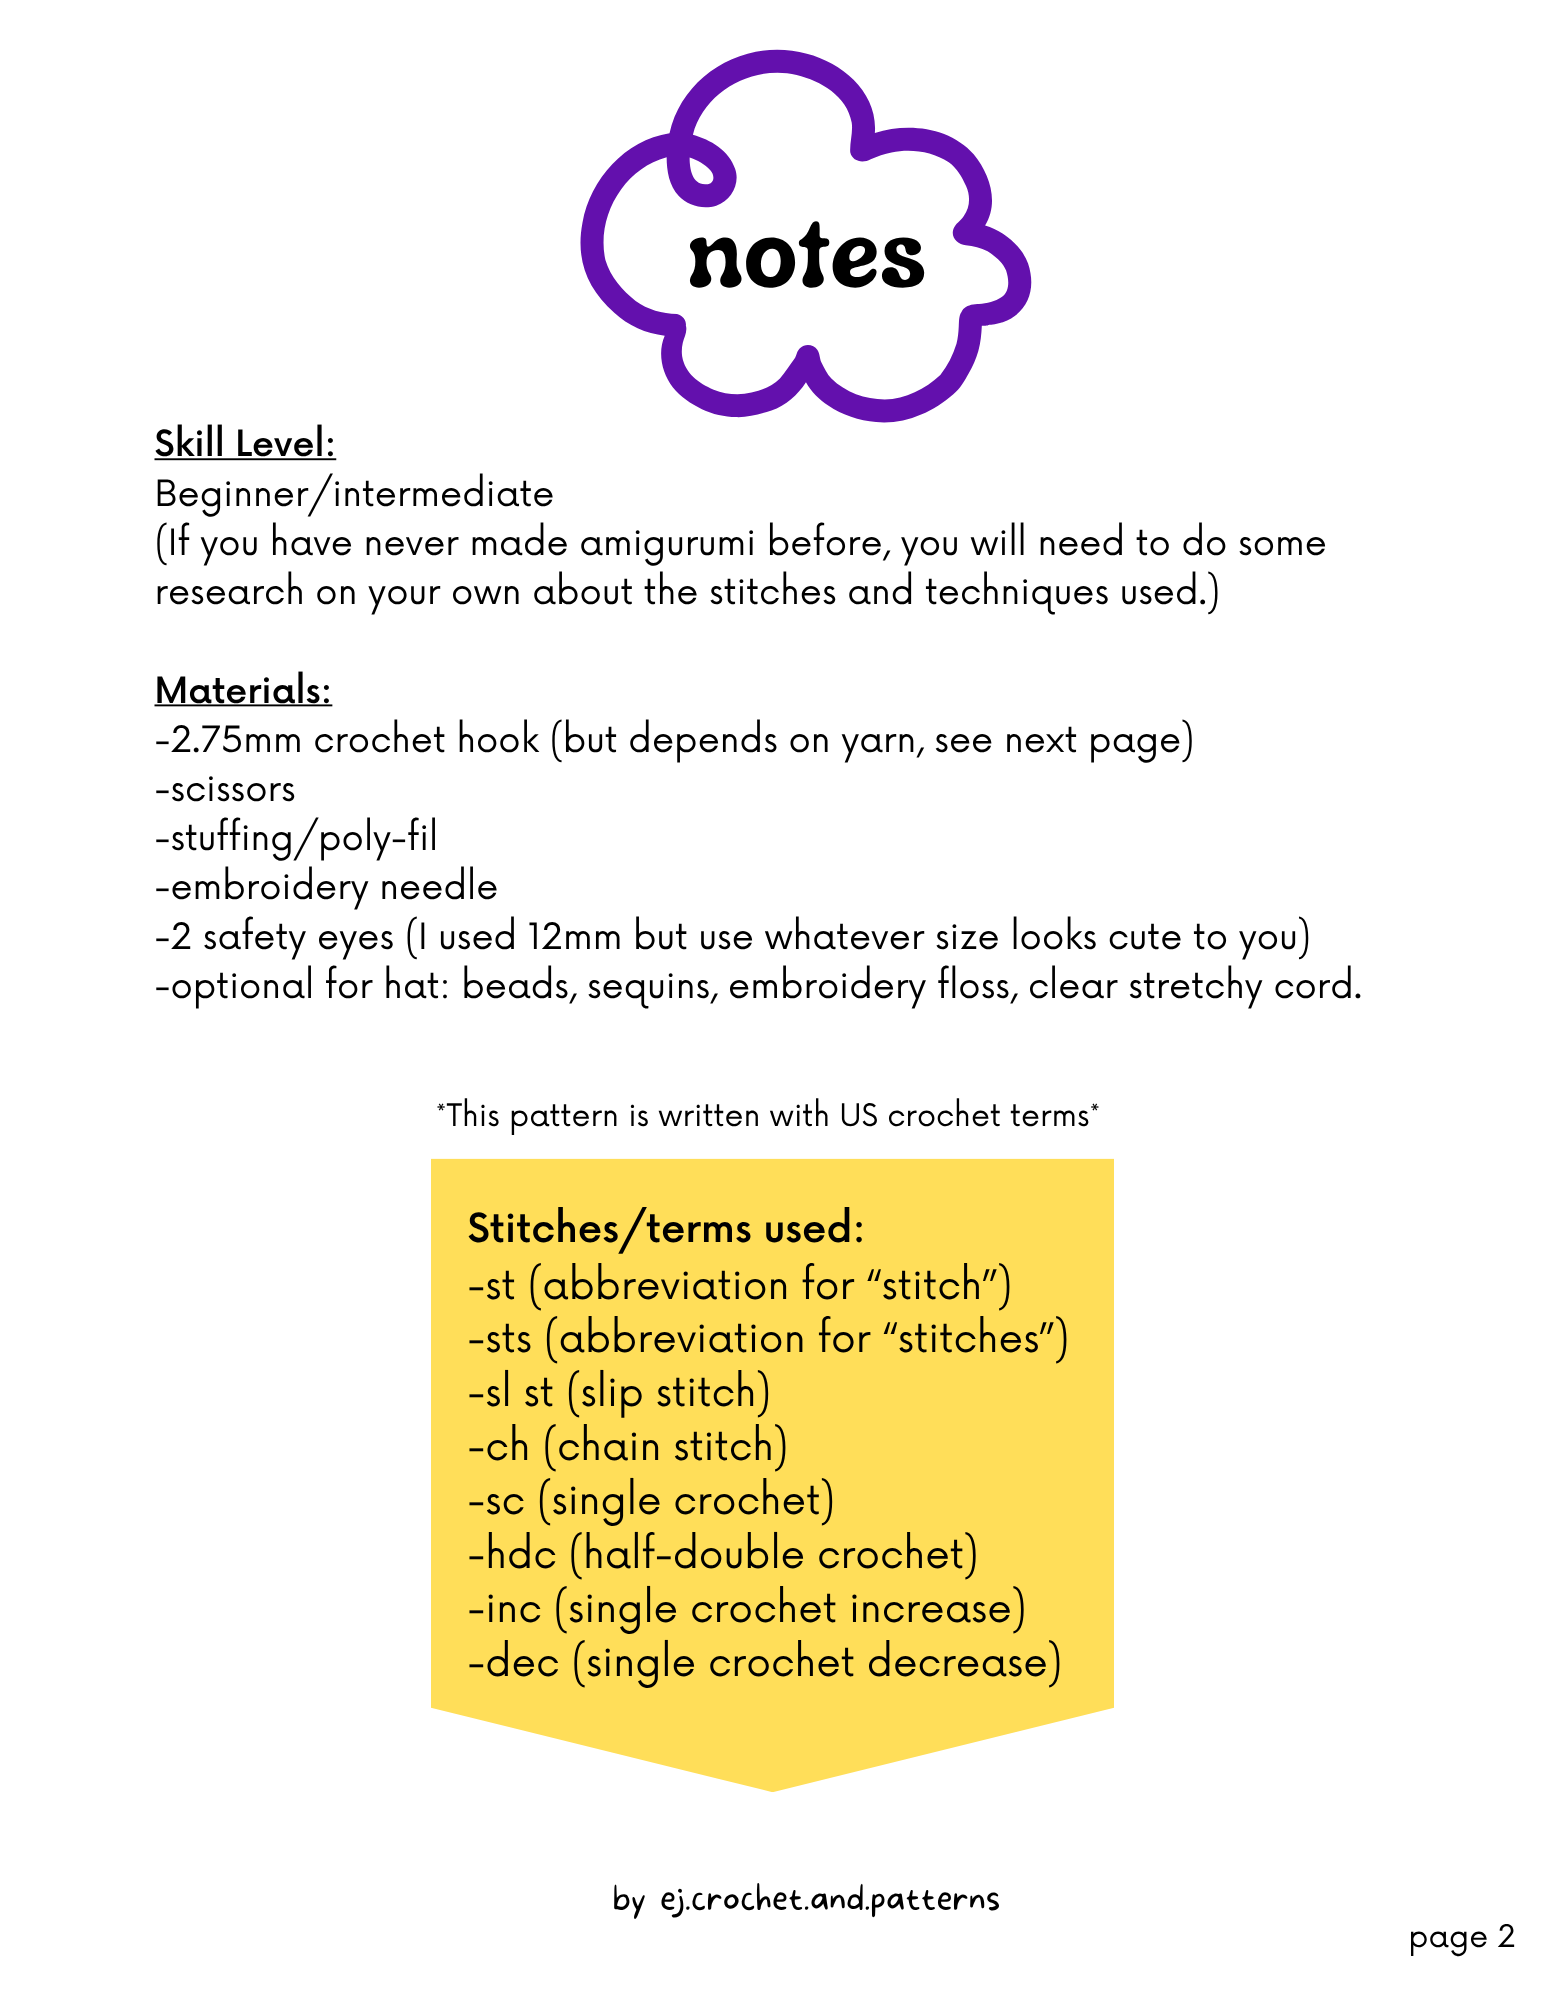 notes
Skill Level:
Beginner/intermediate
(If you have never made amigurumi before, you will need to do some
research on your own about the stitches and techniques used.)
Materials:
-2.75mm crochet hook (but depends on yarn, see next page)
-scissors
-stuffing/poly-fil
-embroidery needle
-2 safety eyes (I used 12mm but use whatever size looks cute to you)
-optional for hat: beads, sequins, embroidery floss, clear stretchy cord.
*This pattern is written with US crochet terms*
Stitches/terms used:
-st (abbreviation for “stitch”)
-sts (abbreviation for “stitches”)
-sl st (slip stitch)
-ch (chain stitch)
-sc (single crochet)
-hdc (half-double crochet)
-inc (single crochet increase)
-dec (single crochet decrease)
by ej.crochet.and.patterns
page 2